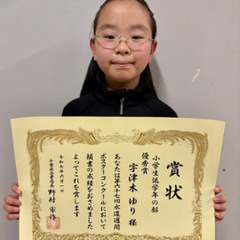 賞状
小学生低学年の部
優秀賞
宇津木 ゆり 様
あなたは第六十七回水道週間
ポスターコンクールにおいて
頭書の成績をおさめました
よってこれを賞します
令和七年六月一日
野村 宗作